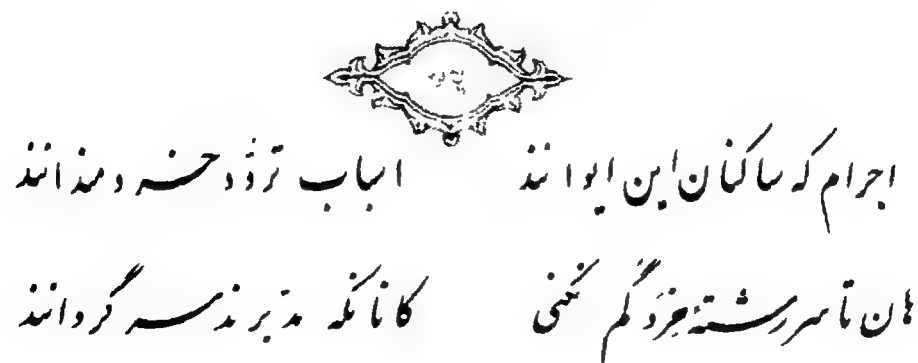 اجرام که ساکنان این ایوانند اسباب تردّد خردمندانند
هان تا سر رشتهٔ خرد گم نکنی کانانکه مدبّرند سرگردانند